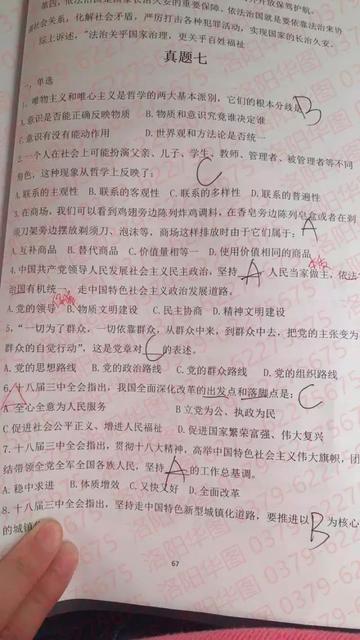 第四，依法治国是国家长治久安的重要保障。依法治国就是要依靠法治来协
调社会关系，化解社会矛盾，严厉打击各种犯罪活动，实现国家的长治久安。
综上所诉，"法治关乎国家治理，更关乎百姓福祉
真题七
一、单选
1、唯物主义和唯心主义是哲学的两大基本派别，它们的根本分线是 B
A.意识是否能正确反映物质 B.物质和意识究竟谁决定谁
C.意识有没有能动作用 D.世界观和方法论是否统一
2.一个人在社会上可能扮演父亲、儿子、学生、教师、管理者、被管理者等不同
角色，这种现象从哲学上反映了: C
A.联系的主观性 B.联系的客观性 C.联系的多样性 D.联系的普遍性
3.在商场，我们可以看到鸡翅旁边陈列炸鸡调料，在香皂旁边陈列皂盒或者在剃
须刀架旁边摆放剃须刀、泡沫等，商场这样排放时由于它们属于: A
A.互补商品 B.替代商品 C.价值量相等一 D.使用价值相同的商品
4.中国共产党领导人民发展社会主义民主政治，坚持 A 人民当家做主，依法
治国有机统一，走中国特色社会主义政治发展道路。
A.党的领导 B.物质文明建设 C.民主协商 D.精神文明建设
5，"一切为了群众，一切依靠群众，从群众中来，到群众中去，把党的主张变为
群众的自觉行动"，这是党章对 C 的表述。
A.党的思想路线 B.党的政治路线 C.党的群众路线 D.党的组织路线
6.十八届三中全会指出，我国全面深化改革的出发点和落脚点是: C
A 全心全意为人民服务 B 立党为公、执政为民
C 促进社会公平正义、增进人民福祉 D.促进国家繁荣富强、伟大复兴
7.十八届三中全会指出，贯彻十八大精神，高举中国特色社会主义伟大旗帜，团
结带领全党全军全国各族人民，坚持 A 的工作总基调。
A.稳中求进 B.体质增效 C.又快又好 D.全面改革
8.十八届三中全会指出，坚持走中国特色新型城镇化道路，要推进以 B 为核心
的城镇
67
洛阳华图 0379-62275675